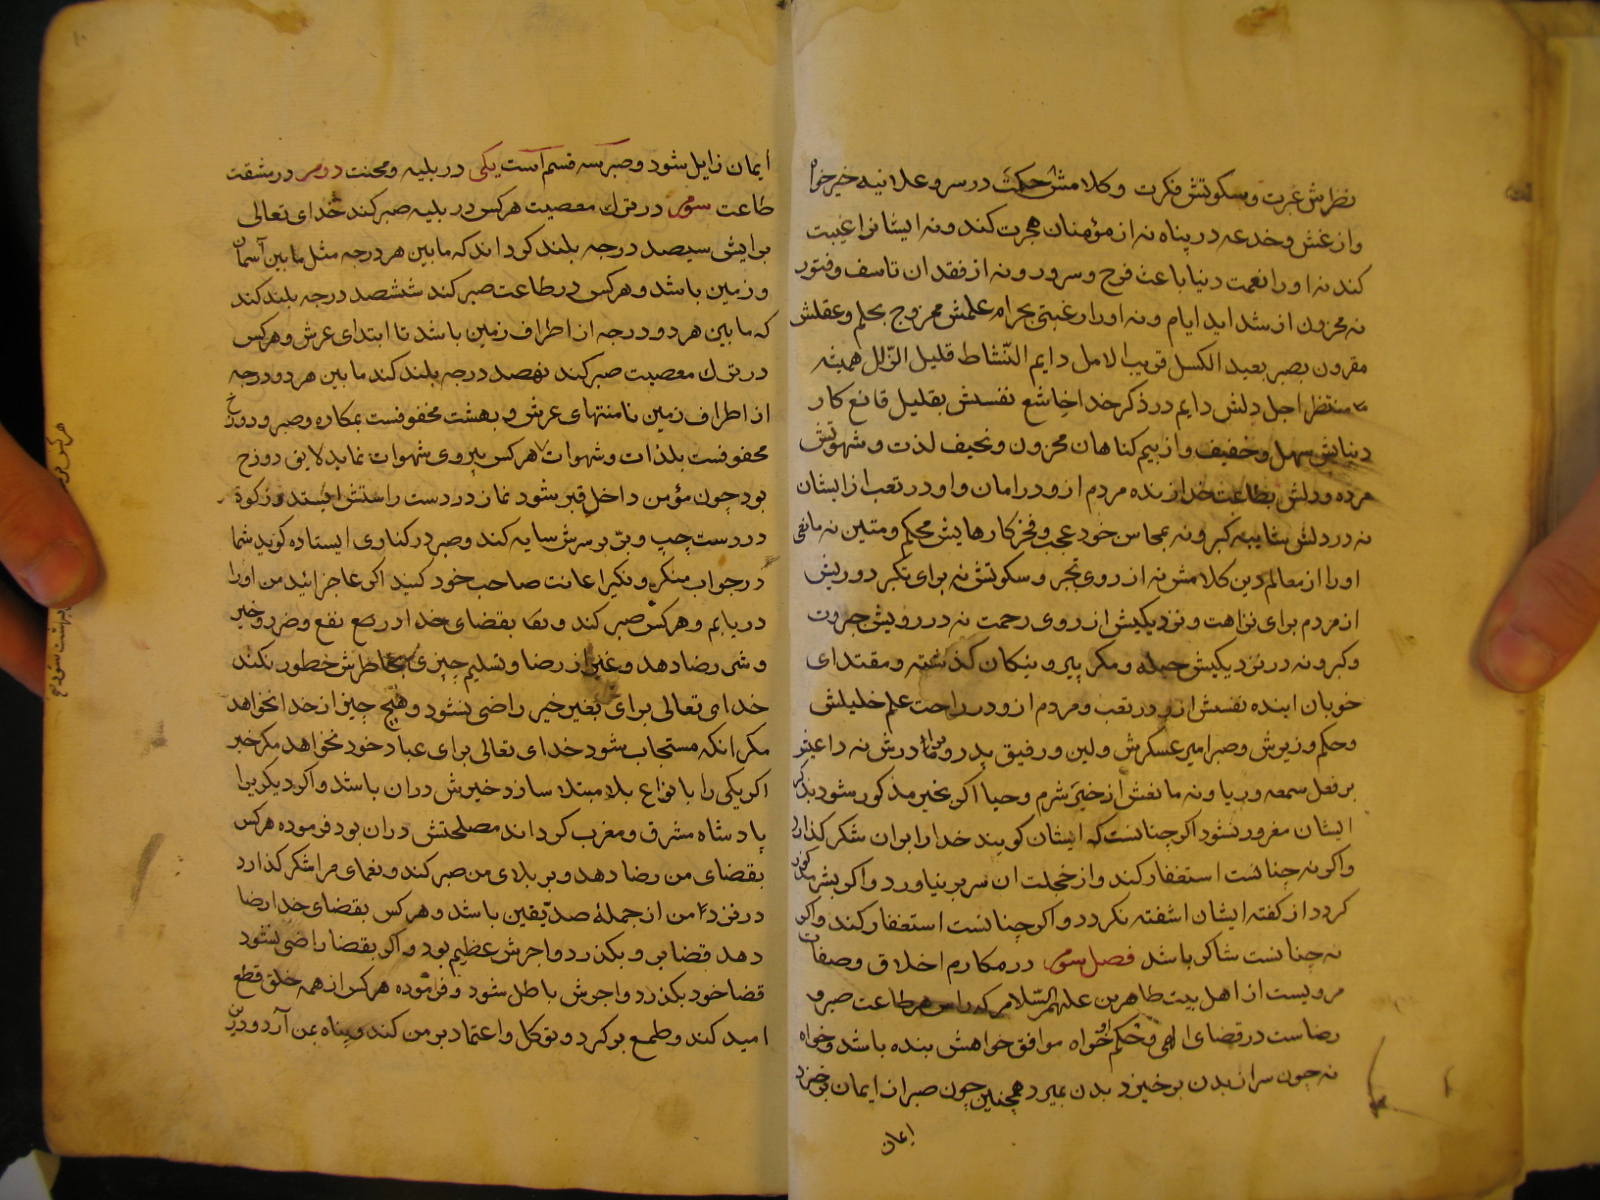 نظرش عبرت و سکوتش فکرت و کلامش حکمت در سر و علانیه خیرخواه
و از غش و خدعه در پناه نه از مؤمنان هجرت کند و نه ایشانرا غیبت
کند نه او را نعمت دنیا باعث فرح و سرور و نه از فقدان تاسف و فتور
نه محزون از شداید ایام و نه او را رغبتی بحرام علمش ممزوج بحلم و عقلش
مقرون بصبر بعید الکسل قریب الامل دایم النّشاط قلیل الزّلل همیشه
منتظر اجل دلش دایم در ذکر خدا خاشع نفسش بقلیل قانع کار
دنیایش سهل و خفیف و از بیم کناهان محزون و نحیف لذت و شهوتش
مرده و دلش بطاعت خدا زنده مردم ازو در امان و او در تعب از ایشان
نه در دلش شایبه کبر و نه بمحاسن خود عجب و فخر کارهایش محکم و متین نه مانعی
او را از معالم دین کلامش نه از روی تجبر و سکوتش نه برای تکبر دوریش
از مردم برای نزاهت و نزدیکیش از روی رحمت نه در دوریش جبروت
و کبر و نه در نزدیکیش حیله و مکر پیرو نیکان کذشته و مقتدای
خوبان اینده نفسش ازو در تعب و مردم ازو در راحت علم خلیلش
و حکم وزیرش و صبر امیر عسکرش و لین و رفیق پدر و مادرش نه داعیش
بر فعل سمعه و ریا و نه مانعش از خیر شرم و حیا اکر بخیر مذکور شود بذکر
ایشان مغرور نشود اکر چنانست که ایشان کویند خدا را بران شکر کذارد
و اکر نه چنانست استغفار کند و از خجلت ان سر بر نیاورد و اکر بشر مذکور
کردد از کفته ایشان اشفته نکردد و اکر چنانست استغفار کند و اکر
نه چنانست شاکر باشد فصل سوم در مکارم اخلاق و صفات
مرویست از اهل بیت طاهرین علیهم السّلام که راس هر طاعت صبر و
رضاست در قضای الهی و حکم او خواه موافق خواهش بنده باشد و خواه
نه چون سر از بدن برخیزد بدن بمیرد همچنین چون صبر از ایمان برخیزد
ایمان
ایمان زایل شود و صبر سه قسم است یکی در بلیه و محنت دوم در مشقت
طاعت سوم در ترك معصیت هرکس در بلیه صبر کند خدای تعالی
برایش سیصد درجه بلند کرداند که ما بین هر درجه مثل ما بین آسمان
و زمین باشد و هرکس در طاعت صبر کند ششصد درجه بلند کند
که ما بین هر دو درجه از اطراف زمین باشد تا ابتدای عرش و هرکس
در ترك معصیت صبر کند نهصد درجه بلند کند ما بین هر دو درجه
از اطراف زمین تا منتهای عرش و بهشت محفوفست بمکاره و صبر و دوزخ
محفوفست بلذات و شهوات هرکس پیروی شهوات نماید لایق دوزخ
بود چون مؤمن داخل قبر شود نماز در دست راستش ایستد و زکوة
در دست چپ و برّ بر سرش سایه کند و صبر در کناری ایستاده کوید شما
در جواب منکر و نکیر اعانت صاحب خود کنید اکر عاجز ائید من او را
دریابم و هرکس صبر کند و بقضای خدا در نفع و ضرر و خیر
و شر رضا دهد و غیر از رضا و تسلیم چیزی بخاطرش خطور نکند
خدای تعالی برای بغیر خیر راضی نشود و هیچ چیز از خدا نخواهد
مکر انکه مستجاب شود خدای تعالی برای عباد خود نخواهد مکر خیر
اکر یکی را بانواع بلا مبتلا سازد خیرش دران باشد و اکر دیکریرا
پادشاه مشرق و مغرب کرداند مصلحتش دران بود فرموده هرکس
بقضای من رضا دهد و بر بلای من صبر کند و نعمای مرا شکر کذارد
در نزد من از جملهٔ صدیقین باشد و هرکس بقضای خدا رضا
دهد قضا برو بکذرد و اجرش عظیم بود و اکر بقضا راضی نشود
قضا خود بکذرد و اجرش باطل شود و فرموده هرکس از همه خلق قطع
امید کند و طمع ببرد و توکل و اعتماد بر من کند و پناه بمن آرد و درین